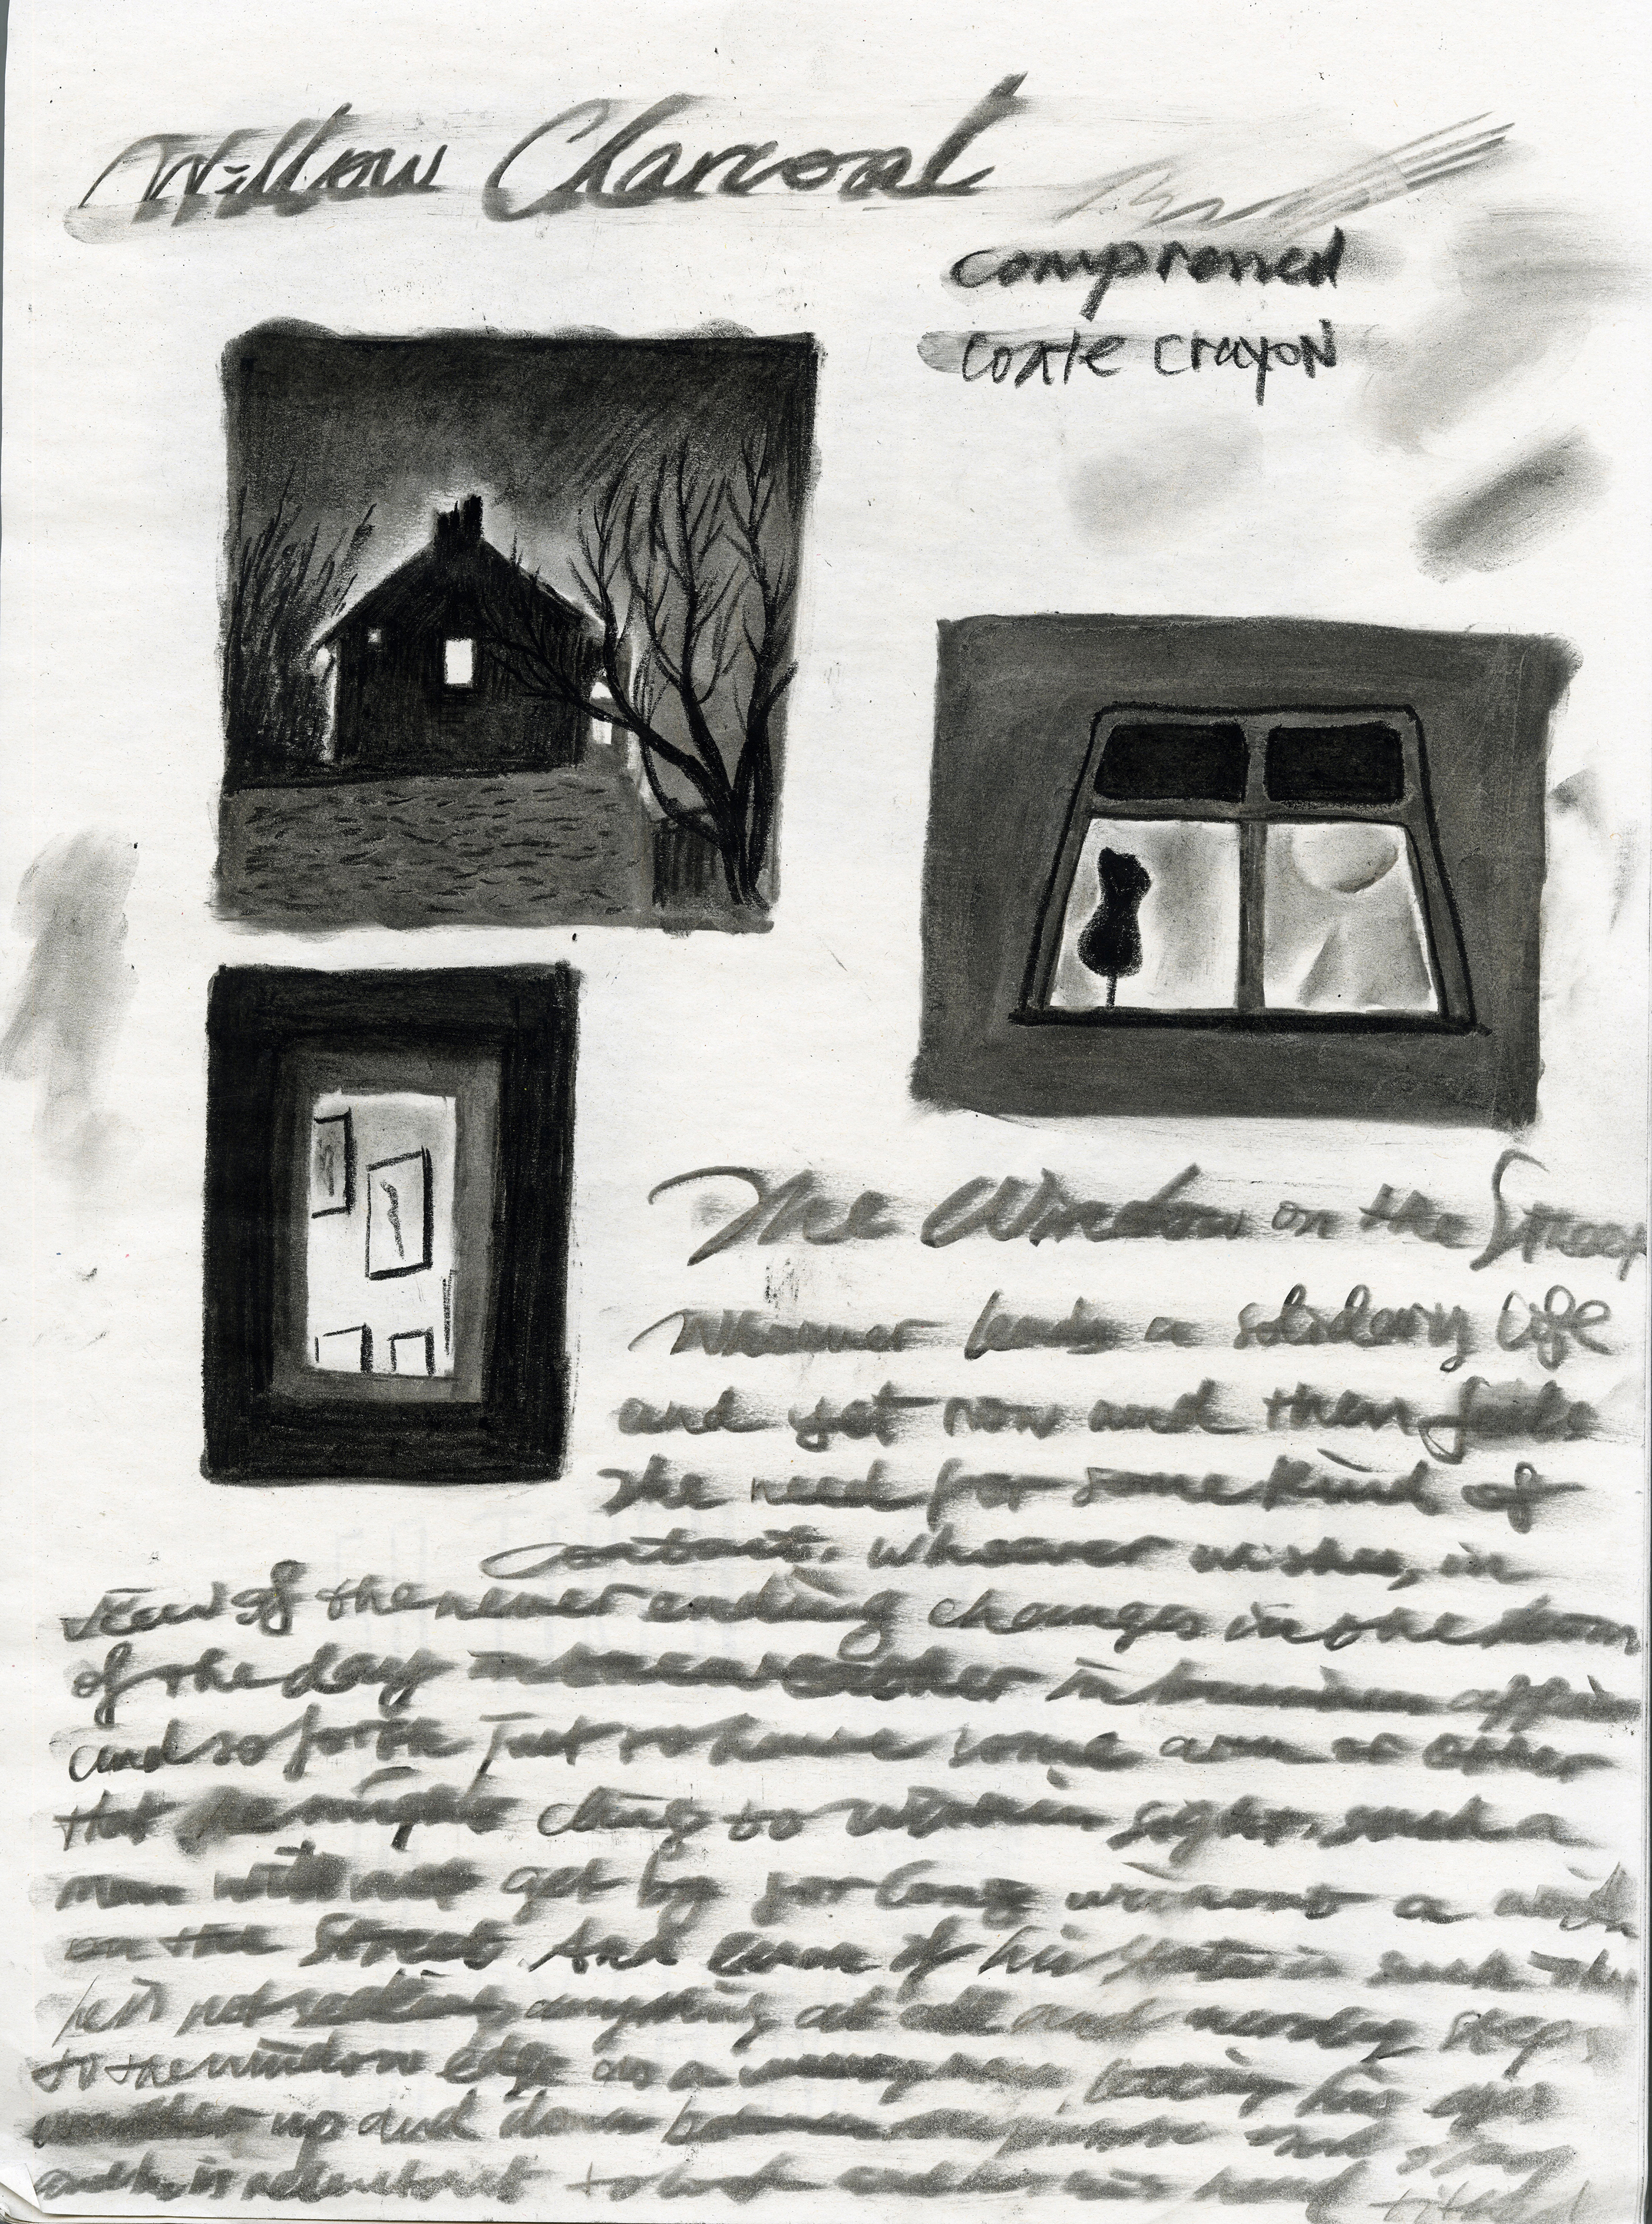 Willow Charcoal
compressed
conte crayon
The Window on the Street
Whoever leads a solidary life
and yet now and then feels
the need for some kind of
contact, whoever wishes, in
view of the never ending changes in the
of the day in the weather in human affairs
and so forth just to have some arm or other
that he might cling to within sight, such a
man will not get by for long without a
on the Street. And even if his state is such
he is not seeking anything at all and steps
to the window edge as a letting his eyes
up and down between and
and he is reluctant to look and his head tilted